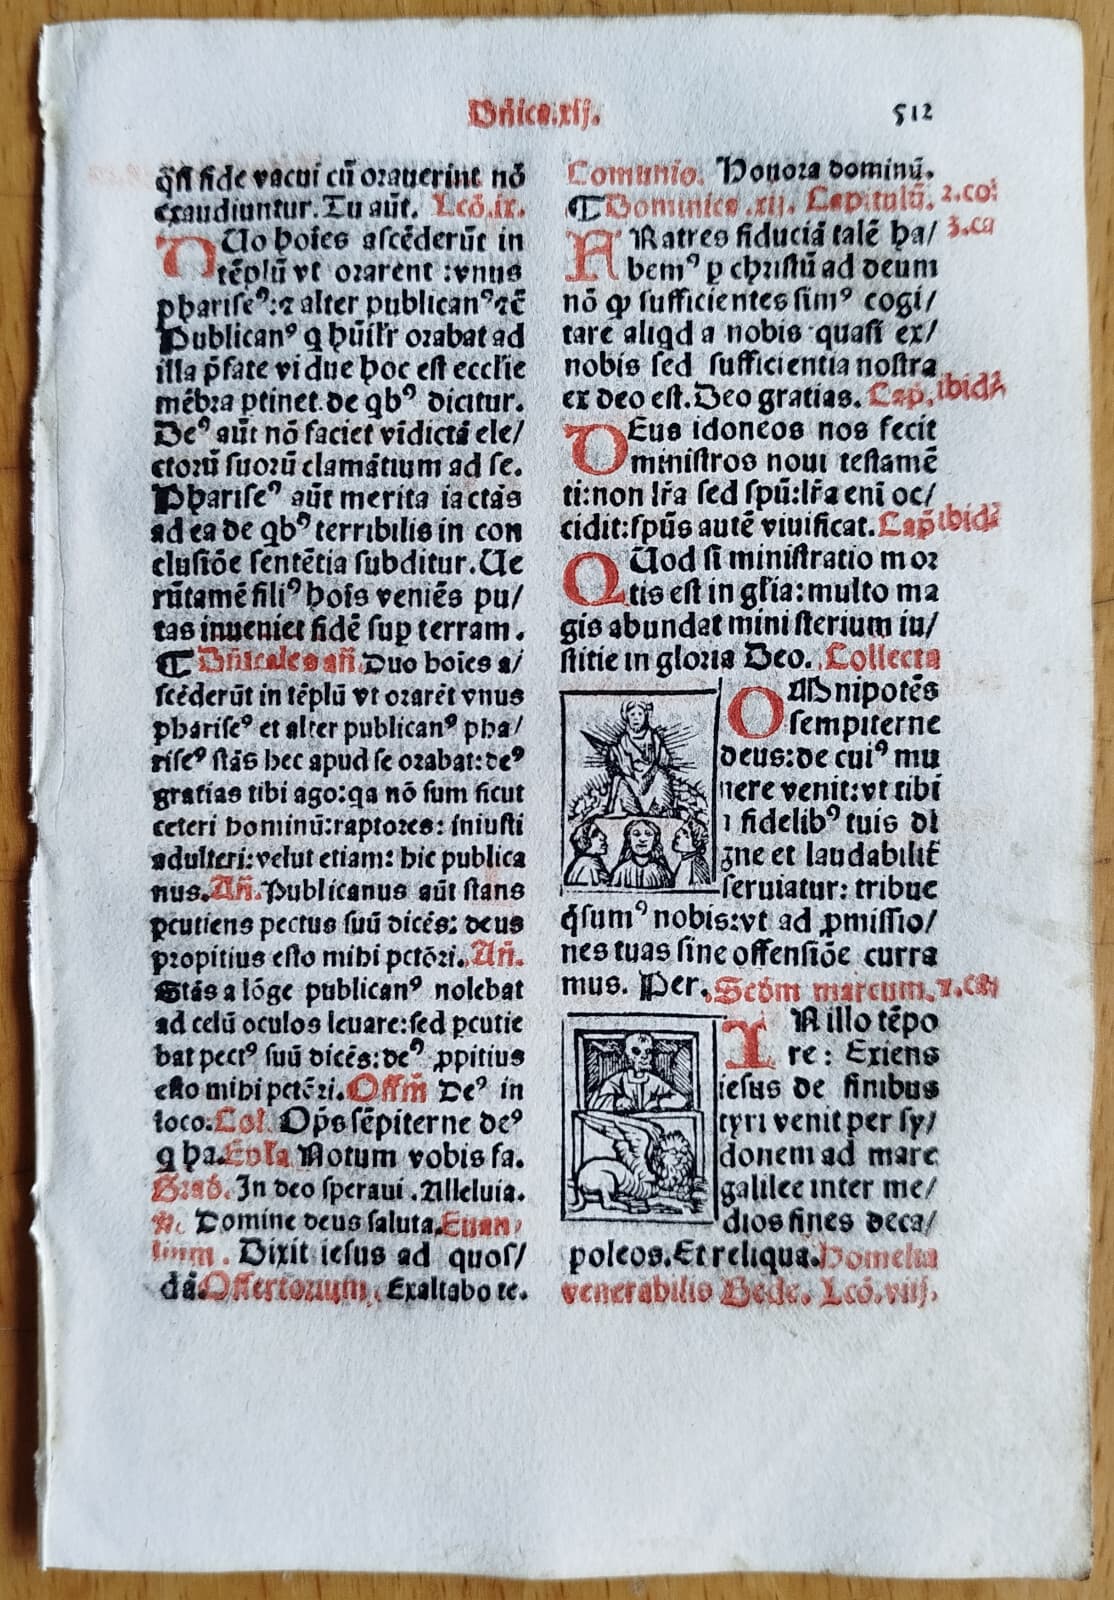 Dñica.xij. 512
q̄si fide vacui cū orauerint nō
exaudiuntur. Tu aūt. Lcō.ix.
DUo hoĩes ascēderūt in
tēplū vt orarent :vnus
pharise⁹:⁊ alter publican⁹ ⁊c̄
Publican⁹ q hũil'r orabat ad
illa p̄fate vidue hoc est eccl'ie
mēbra ꝑtinet. de qb⁹ dicitur.
De⁹ aūt nō faciet vīdictā ele/
ctorū suorū clamātium ad se.
Pharise⁹ aūt merita iactās
ad ea de qb⁹ terribilis in con
clusiōe sentētia subditur. Ue
rūtamē fili⁹ hoīs veniēs pu/
tas inueniet fidē suꝑ terram.
¶ Dñicales añ. Duo hoies a/
scēderūt in tēplū vt orarēt vnus
pharise⁹ et alter publican⁹ pha/
rise⁹ stās hec apud se orabat: de⁹
gratias tibi ago: qa nō sum sicut
ceteri hominū: raptores: iniusti
adulteri: velut etiam: hic publica
nus. Añ. Publicanus aūt stans
ꝑcutiens pectus suū dicēs: deus
propitius esto mihi pctōri. Añ.
Stās a lōge publican⁹ nolebat
ad celū oculos leuare: sed ꝑcutie
bat pect⁹ suū dicēs: de⁹ ꝓpitius
esto mihi pctōri. Offm̄ De⁹ in
loco: Col. Op̄s sēpiterne de⁹
q ha. Epl'a Notum vobis fa.
Grad. In deo speraui. Alleluia.
℣. Domine deus saluta. Euan/
lium. Dixit iesus ad quos/
dā. Offertorium. Exaltabo te.
Comunio. Honora dominū.
¶ Dominica .xij. Capitulū. 2.co:
FRatres fiduciā talē ha/ 3.ca
bem⁹ ꝑ christū ad deum
nō ꝙ sufficientes sim⁹ cogi/
tare aliqd a nobis quasi ex/
nobis sed sufficientia nostra
ex deo est. Deo gratias. Cap. ibidē
DEus idoneos nos fecit
ministros noui testamē
ti: non l'ra sed spū: l'ra enī oc/
cidit: spūs autē viuificat. Cap̄ ibidē
QUod si ministratio mor
tis est in gl'ia: multo ma
gis abundat ministerium iu/
stitie in gloria Deo. Collecta
OMnipotēs
sempiterne
deus: de cui⁹ mu
nere venit: vt tibi
a fidelib⁹ tuis di
gne et laudabilit̄
seruiatur: tribue
q̄sum⁹ nobis: vt ad ꝓmissio/
nes tuas sine offensiōe curra
mus. Per. Scd̄m marcum. 7.ca:
IN illo tēpo
re: Exiens
iesus de finibus
tyri venit per sy/
donem ad mare
galilee inter me/
dios fines deca/
poleos. Et reliqua. Homelia
venerabilis Bede. Lcō.viij.